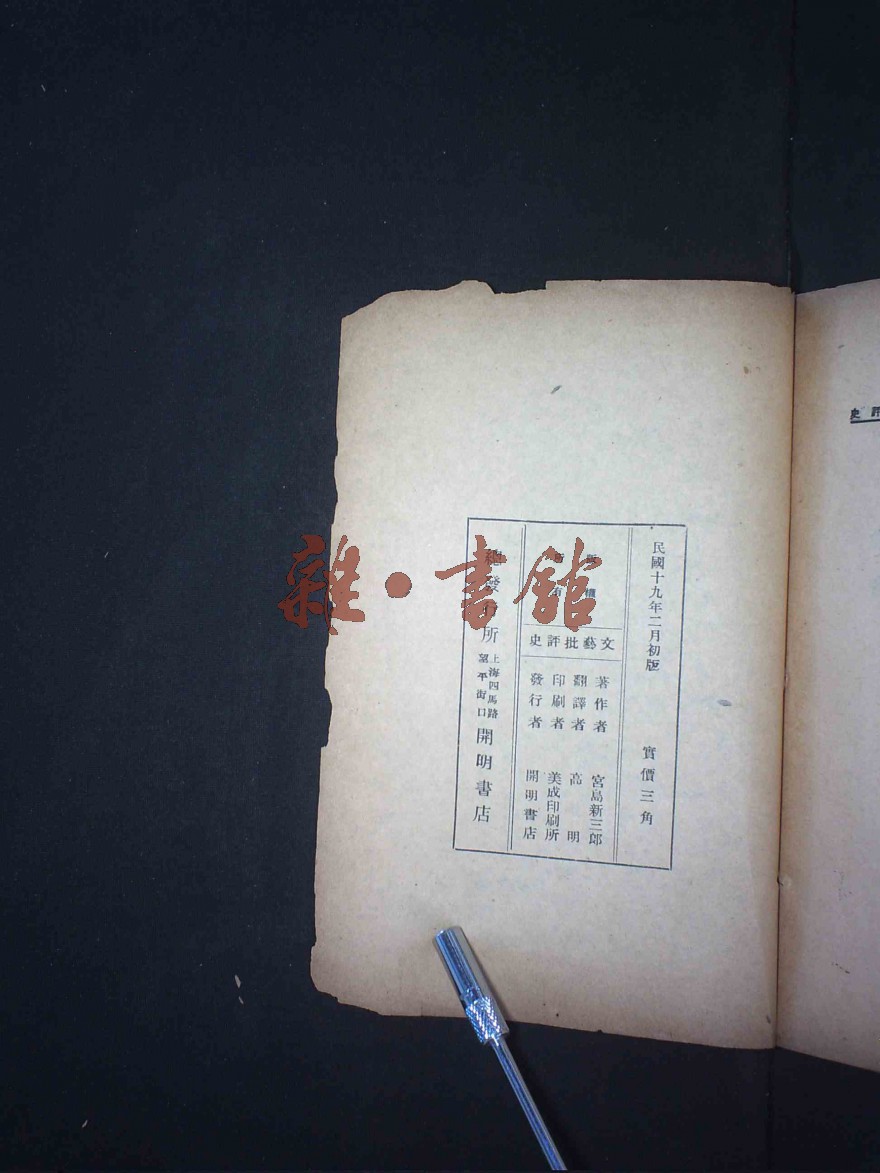 評史
民國十九年二月初版
實價三角
版權
所有
文藝批評史
著作者 宮島新三郎
翻譯者 高明
印刷者 美成印刷所
發行者 開明書店
總發行所
上海四馬路
望平街口
開明書店
雜·書館